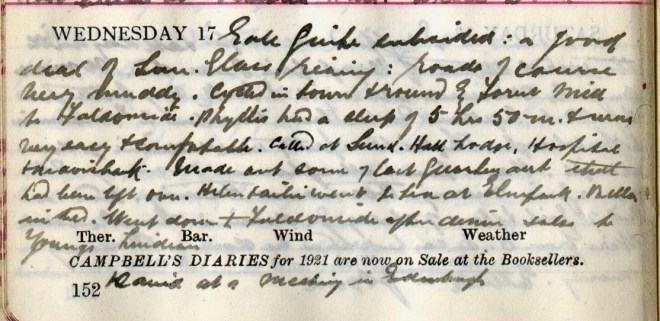 WEDNESDAY 17 Gale quite subsided : a good
deal of Sun. Glass rising : roads of course
very muddy. Called in town & round by Forest Mill
to Faldonside. Phyllis had a sleep of 5 hrs 50 m. & was
very easy & comfortable. Called at Lodge, Hospital
& Made out some of last account that
had been left over. Helen went to tea at Elmpark.
in bed. Went down to Faldonside after dinner
Young's
Ther. Bar. Wind Weather
CAMPBELL'S DIARIES for 1921 are now on Sale at the Booksellers.
152 David at a meeting in Edinburgh